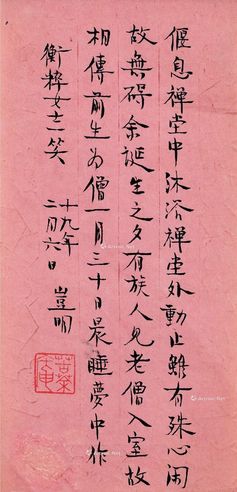 偃息禅堂中沐浴禅堂外動止雖有殊心閑
故無碍余誕生之夕有族人見老僧入室故
相傳前生為僧一月三十日晨睡夢中作
衡粹女士一笑
十九年二月六日 豈明
苦茶庵